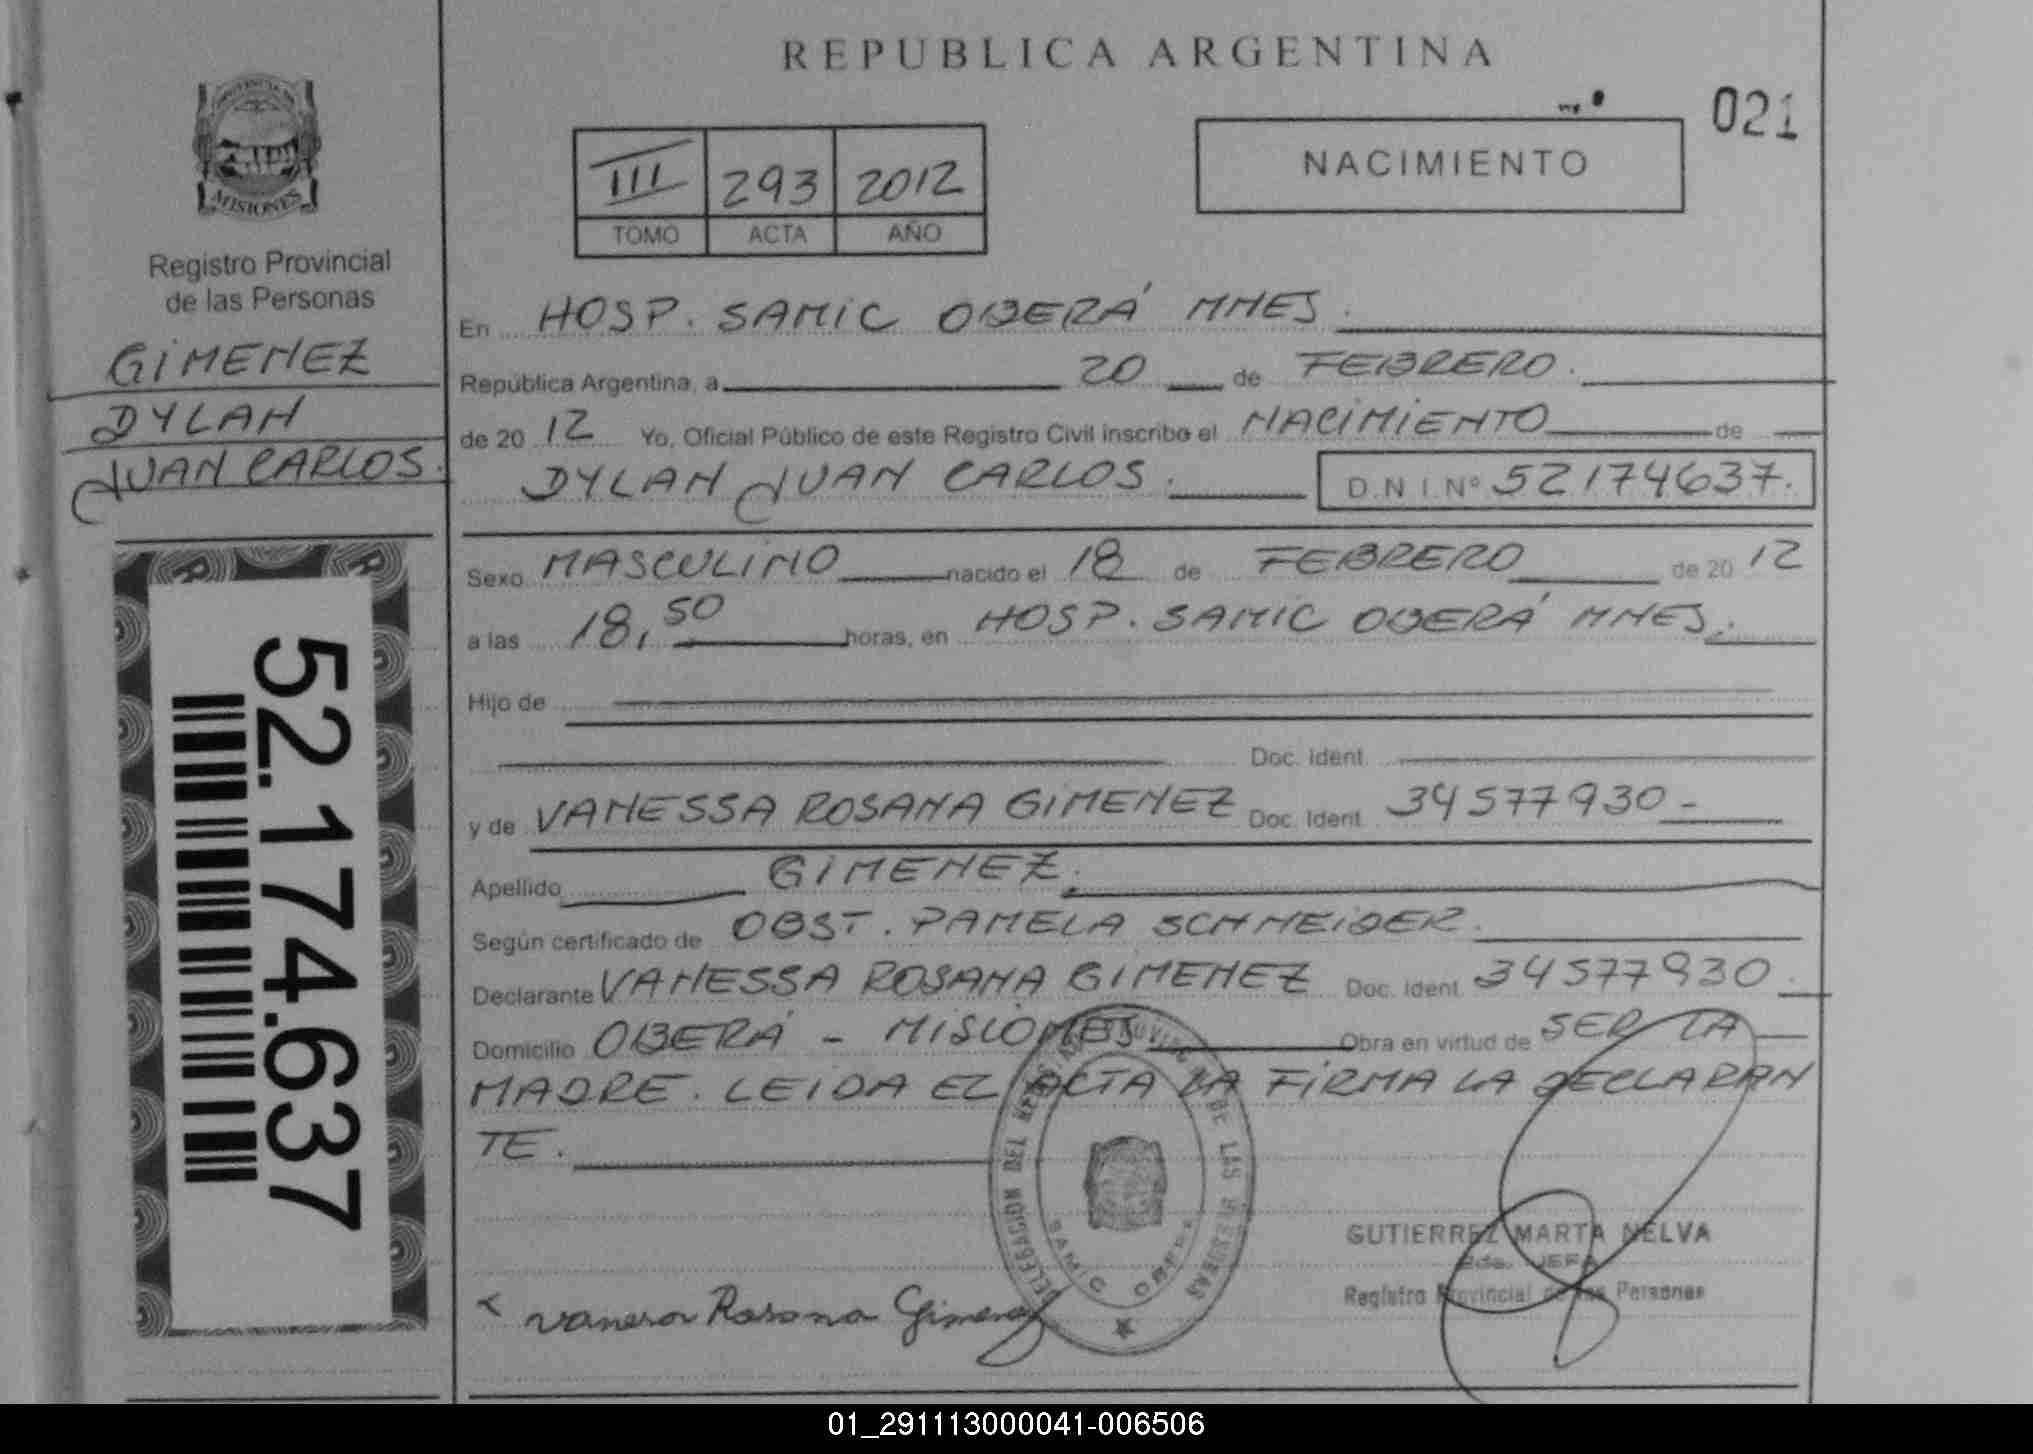 REPUBLICA ARGENTINA
021
PROVINCIA DE
MISIONES
Registro Provincial
de las Personas
GIMENEZ
DYLAN
JUAN CARLOS.
52.174.637
III 293 2012
TOMO ACTA AÑO
NACIMIENTO
En HOSP. SAMIC OBERÁ MNES.
República Argentina, a 20 de FEBRERO.
de 20 12 Yo, Oficial Público de este Registro Civil inscribo el NACIMIENTO de
DYLAN JUAN CARLOS. D.N.I.Nº 52174637.
Sexo MASCULINO nacido el 18 de FEBRERO de 20 12
a las 18,50 horas, en HOSP. SAMIC OBERÁ MNES.
Hijo de
Doc. Ident.
y de VANESSA ROSANA GIMENEZ Doc. Ident. 34577930-
Apellido GIMENEZ.
Según certificado de OBST. PAMELA SCHNEIDER.
Declarante VANESSA ROSANA GIMENEZ Doc. Ident. 34577930.
Domicilio OBERÁ - MISIONES Obra en virtud de SER LA
MADRE. LEIDA EL ACTA LA FIRMA LA DECLARAN
TE.
DELEGACION DEL REGISTRO PROVINCIAL DE LAS PERSONAS
SAMIC OBERA
GUTIERREZ MARTA NELVA
2da. JEFA
Registro Provincial de las Personas
Vanesa Rosana Gimenez
01_291113000041-006506